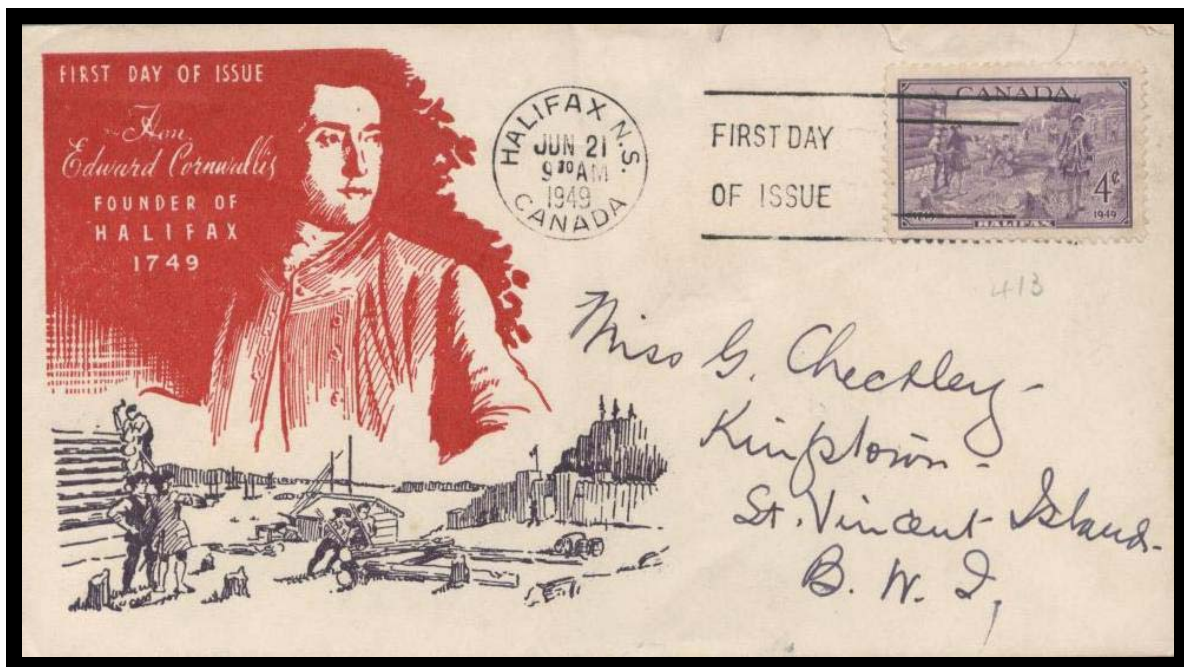 FIRST DAY OF ISSUE
Hon.
Edward Cornwallis
FOUNDER OF
HALIFAX
1749
HALIFAX N.S.
JUN 21
9 30 AM
1949
CANADA
FIRST DAY
OF ISSUE
CANADA
4¢
1949
HALIFAX
413
Miss G. Checkley -
Kingstown -
St. Vincent Island -
B. W. I,